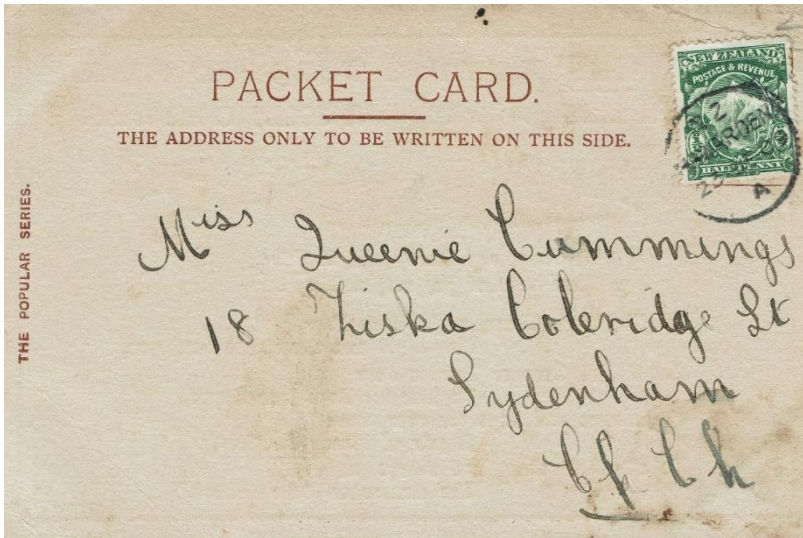 PACKET CARD.
THE ADDRESS ONLY TO BE WRITTEN ON THIS SIDE.
THE POPULAR SERIES.
NEW ZEALAND
POSTAGE & REVENUE
HALF PENNY
A
Miss Queenie Cummings
18 Ziska Coleridge St
Sydenham
Ch Ch